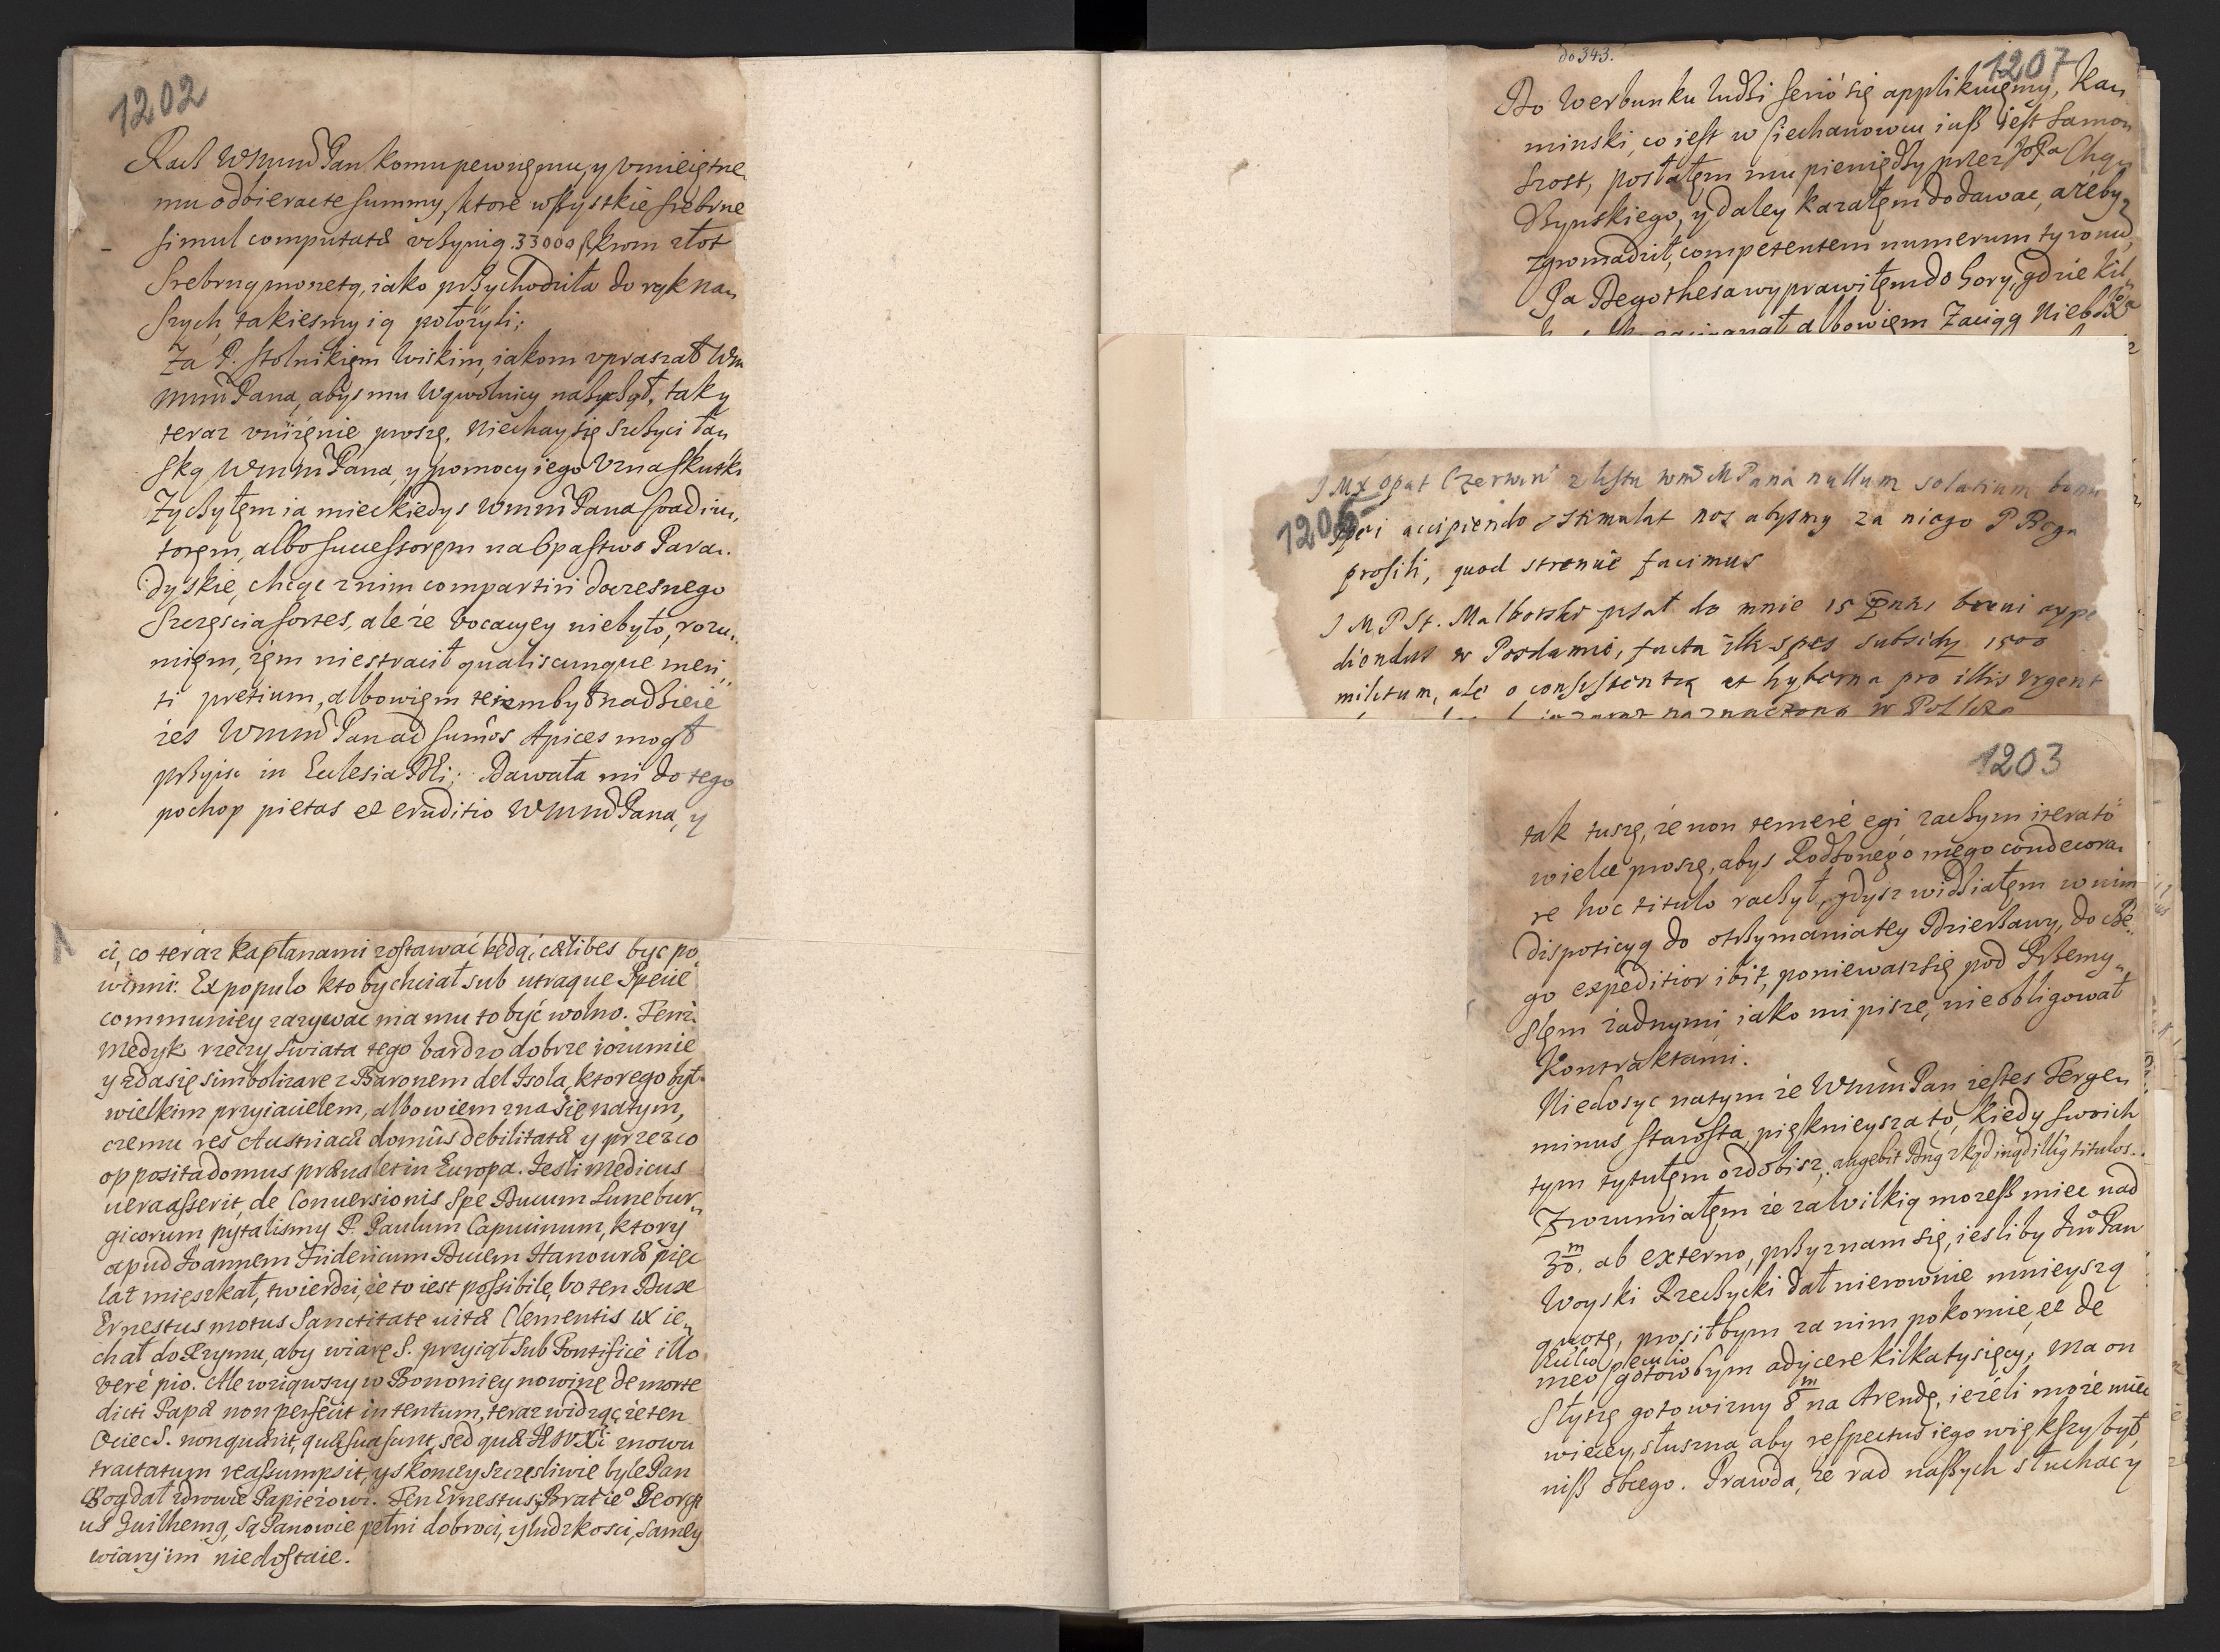 1202
Racz WMMP Pan komu pewnęmu, y vmieiętne
mu odbierac te summy, ktore wszystkie srebrne
simul computatæ vczynią 33000
Srebrną monetą, iako przychodziła do rąk na„
szych, takiesmy ią połozyli;
Za P. Stolnikięm Wiskim, iakom vpraszał Wm
Pana, abys mu wywolnicy, tak y
teraz vniżęnie proszę. Niechay się szczyci łas
ską Pana, y pomocy iego vzna skutki
Zyczyłęm ia mieć kiedys Pana
torem, albo successorem na Opastwo Para„
dyskie, chcąc z nim compartiri doczesnego
Szczęscia sortes, ale że vocacyey nie było, rozu„
mięm, żęm nie stracił qualiscunque meri„
ti pretium, albowięm był nadzieie
żes Pan ad sumôs Apices mogł
przyisc in Eclesia Dei; Dawała mi do tego
pochop pietas et eruditio Pana, y
ci, co teraz kapłanami zostawać będą, cælibes byc po„
winni. Ex populo kto by chciał sub utraque Specie
communiey zazywać ma mu to być wolno. Tenże
Medyk rzeczy swiata tego bardzo dobrze rozumie
y zda się simbolizare z Baronem del Isola, ktorego był
wielkim przyiacielem, albowiem zna się na tym,
czemu res Austriacæ domûs debilitatæ y przez co
opposita domus præualet in Europa. Iesli Medicus
uera asserit, de Conuersionis Spe Ducum Lunebur„
gicorum pytalismy P. Paulum Capucinum, ktory
apud Joannem Fridericum Ducem Hanouræ pięc
lat mięszkał, twierdzi, że to iest possibile, bo ten Dux
Ernestus motus Sanctitate uitæ Clementis IX ie„
chał do Rzymu, aby wiarę S. przyiął sub Pontifice illo
vere pio. Ale wziąwszy w Bononiey nowinę de morte
dicti Papæ non perfecit intentum, teraz widząc że ten
Ociec S. non quærit, quæ sua sunt, sed quæ Xi znowu
tractatum reassumpsit, y skonczy szczęsliwie byle Pan
Bog dał zdrowie Papieżowi. Ten Ernestus, y Brat ie° Georgi
us Guilhelmg, są Panowie pełni dobroci, y ludzkosci, samey
wiary im niedostaie.
do 343.
1207
Do Werbunku ludzi serio się applikuięmy, Kau
minski, co iest w Ciechanowcu iusz iest Samou
szost, posłałęm mu pieniędzy przez JoPa Chąy
dzynskiego, y daley kazałęm dodawac, a żeby
zgromadził, competentem numerum tyronu,
Pa Degothesa wyprawiłęm do Gory, gdzie kil„
albowięm Zaciąg Niebo
1205
JMX Opat Czerwin z listu wm MPana nullum solatium
accipiendo stimulat nos abysmy za niego P Boga
prosili, quod strenue facimus
J M P St. Malborski pisał do mnie 15
diendus w Posdamie, facta illi spes subsidy 1500
militum, ale o consistentią et hyberna pro illis vrgent
naznaczona w Polszcze
1203
tak tuszę, że non temere egi, zaczym iterato
wielce proszę, abys Rodzonego mego condecora„
re hoc titulo raczył, gdysz widziałęm w nim
disposicyą do otrzymania tey Dzierzawy, do cze„
go expeditior ibit, poniewasz się pod Przemy„
slem żadnymi, iako mi pisze, nie obligował
Kontraktami.
Niedosyc na tym że Pan iestes Fergen
minus Starosta, pięknieysza to, kiedy swoich
tym tytułęm ozdobisz, augebit Bng titulos.
Zrozumiałęm że za Wilkią mozesz miec nad
30. m ab externo, przyznam się, iesliby Jm Pan
Woyski Rzeczycki dał nierownie mnieyszą
quotę, prosiłbym za nim pokornie, et de
peculio
meo gotowbym adycere kilka tysięcy; ma on
Słyszę gotowizny 8 m na Arendę, ieżeli może miec
wiecey, słuszna aby respectus iego większy był,
nisz obcego. Prawda, że rad naszych słuchac y